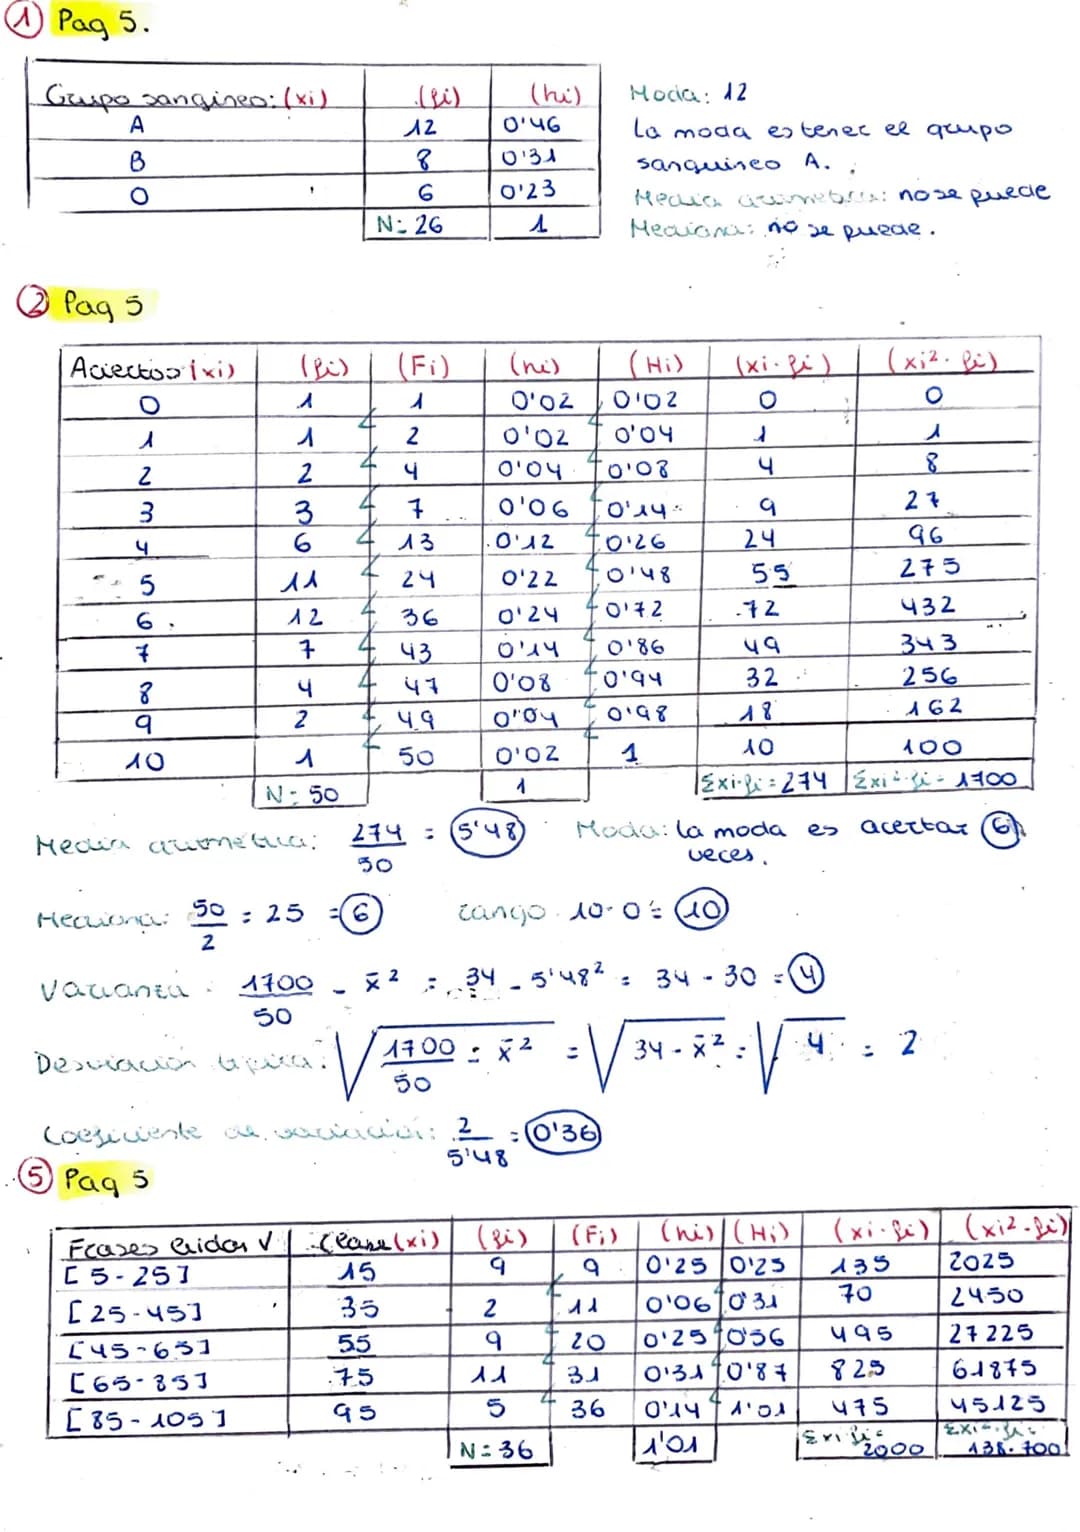 ① Pag 5.
Grupo sangineo: (xi) (fi) (hi)
A 12 0'46
B 8 0'31
O 6 0'23
N= 26 1
Moda: 12
La moda es tener el grupo
sanguineo A.
Media aritmetica: no se puede
Mediana: no se puede.
② Pag 5
Aciertos (xi) (fi) (Fi) (hi) (Hi) (xi·fi) (xi²·fi)
0 1 1 0'02 0'02 0 0
1 1 2 0'02 0'04 1 1
2 2 4 0'04 0'08 4 8
3 3 7 0'06 0'14 9 27
4 6 13 0'12 0'26 24 96
5 11 24 0'22 0'48 55 275
6 12 36 0'24 0'72 72 432
7 7 43 0'14 0'86 49 343
8 4 47 0'08 0'94 32 256
9 2 49 0'04 0'98 18 162
10 1 50 0'02 1 10 100
N= 50 1 Σxi·fi=274 Σxi²·fi=1700
Media aritmética: 274/50 = 5'48 Moda: la moda es acertar 6
veces.
Mediana: 50/2 = 25 = 6 rango 10-0= 10
Varianza 1700/50 - x̄² = 34 - 5'48² = 34 - 30 = 4
Desviación típica: √1700/50 - x̄² = √34 - x̄² = √4 = 2
Coeficiente de variación: 2/5'48 = 0'36
⑤ Pag 5
Frases leidas V Clase (xi) (fi) (Fi) (hi) (Hi) (xi·fi) (xi²·fi)
[5-25] 15 9 9 0'25 0'25 135 2025
[25-45] 35 2 11 0'06 0'31 70 2450
[45-65] 55 9 20 0'25 0'56 495 27225
[65-85] 75 11 31 0'31 0'87 825 61875
[85-105] 95 5 36 0'14 1'01 475 45125
N= 36 1'01 Σxi·fi= 2000 Σxi²·fi= 138.700